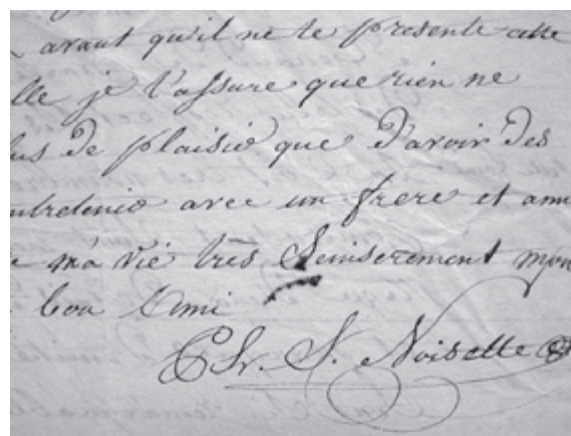 avant qu'il ne te presente cette
lle je t'assure que rien ne
lus de plaisir que d'avoir des
ntretenir avec un frere et ami
ma vie très Sinserement mon
bon Ami
Ph. S. Noisette